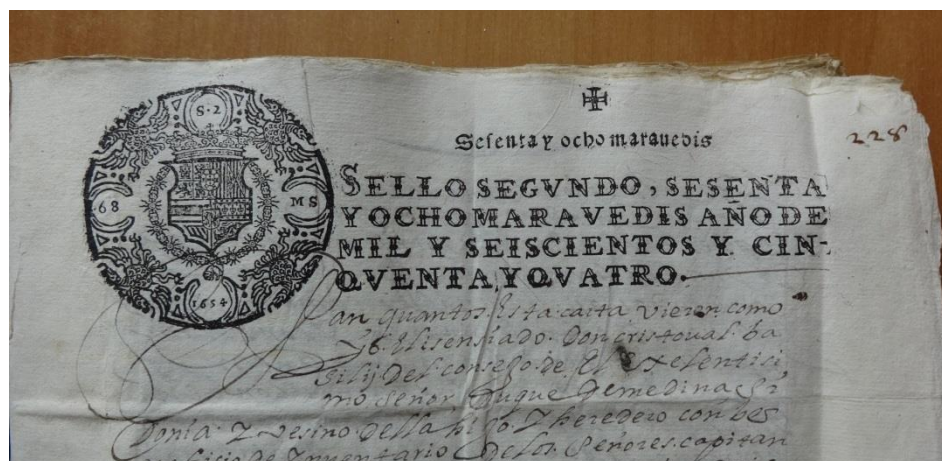 S·2
68 MS
1654
Sesenta y ocho maravedis
228
SELLO SEGVNDO, SESENTA
Y OCHO MARAVEDIS AÑO DE
MIL Y SEISCIENTOS Y CIN-
QVENTA, Y QVATRO.
Sepan quantos Esta carta vieren como
Yo. El lisensiado. Don cristoual. ba
silij Del consejo de el Exelentisi
mo señor Duque de medina çi
Donia. Y Vesino Della hijo Y heredero con be
ficio de Inventario De los Señores capitan